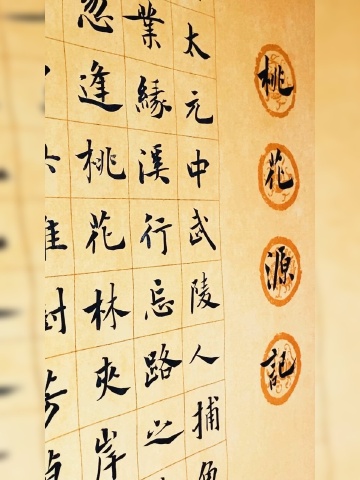 桃花源記
太元中武陵人捕
業緣溪行忘路之
忽逢桃花林夾岸